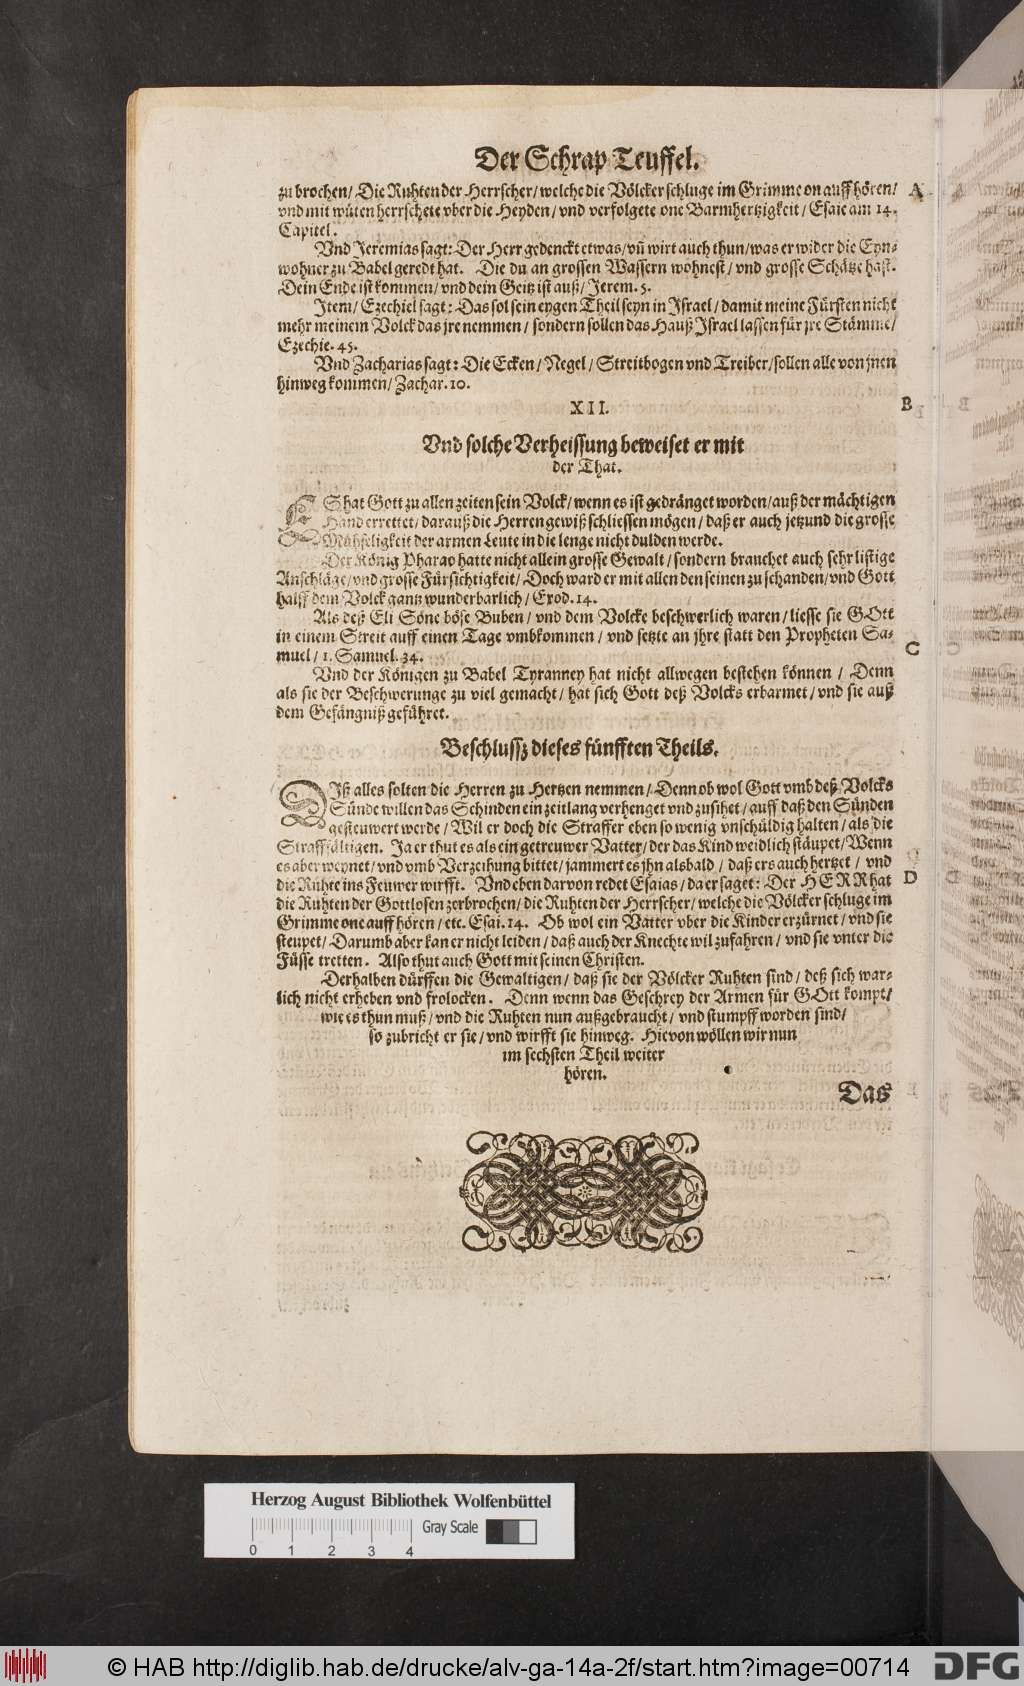 Der Schrap Teuffel.
zu brochen/ Die Ruhten der Herrscher/ welche die Völcker schluge im Grimme on auff hören/ A
vnd mit wüten herrschete vber die Heyden/ vnd verfolgete one Barmhertzigkeit/ Esaie am 14.
Capitel.
Vnd Jeremias sagt: Der Herr gedenckt etwas/ vñ wirt auch thun/ was er wider die Eyn-
wohner zu Babel geredt hat. Die du an grossen Wassern wohnest/ vnd grosse Schätze hast.
Dein Ende ist kommen/ vnd dein Geitz ist auß/ Jerem. 5.
Item/ Ezechiel sagt: Das sol sein eygen Theil seyn in Israel/ damit meine Fürsten nicht
mehr meinem Volck das jre nemmen/ sondern sollen das Hauß Israel lassen für jre Stämme/
Ezechie. 45.
Vnd Zacharias sagt: Die Ecken/ Negel/ Streitbogen vnd Treiber/ sollen alle von jnen
hinweg kommen/ Zachar. 10.
XII. B
Vnd solche Verheissung beweiset er mit
der That.
ES hat Gott zu allen zeiten sein Volck/ wenn es ist gedränget worden/ auß der mächtigen
Hand errettet/ darauß die Herren gewiß schliessen mögen/ daß er auch jetzund die grosse
Mühseligkeit der armen Leute in die lenge nicht dulden werde.
Der König Pharao hatte nicht allein grosse Gewalt/ sondern brauchet auch sehr listige
Anschläge/ vnd grosse Fürsichtigkeit/ Doch ward er mit allen den seinen zu schanden/ vnd Gott
halff dem Volck gantz wunderbarlich/ Exod. 14.
Als deß Eli Söne böse Buben/ vnd dem Volcke beschwerlich waren/ liesse sie GOtt
in einem Streit auff einen Tage vmbkommen/ vnd setzte an jhre statt den Propheten Sa-
muel/ 1. Samuel. 34. C
Vnd der Königen zu Babel Tyranney hat nicht allwegen bestehen können/ Denn
als sie der Beschwerunge zu viel gemacht/ hat sich Gott deß Volcks erbarmet/ vnd sie auß
dem Gefängniß geführet.
Beschlussz dieses fünfften Theils.
DIß alles solten die Herren zu Hertzen nemmen/ Denn ob wol Gott vmb deß Volcks
Sünde willen das Schinden ein zeitlang verhenget vnd zusihet/ auff daß den Sünden
gesteuwert werde/ Wil er doch die Straffer eben so wenig vnschüldig halten/ als die
Straffältigen. Ja er thut es als ein getreuwer Vatter/ der das Kind weidlich stäupet/ Wenn
es aber weynet/ vnd vmb Verzeihung bittet/ jammert es jhn alsbald/ daß ers auch hertzet/ vnd
die Ruhte ins Feuwer wirfft. Vnd eben darvon redet Esaias/ da er saget: Der HERR hat D
die Ruhten der Gottlosen zerbrochen/ die Ruhten der Herrscher/ welche die Völcker schluge im
Grimme one auff hören/ etc. Esai. 14. Ob wol ein Vatter vber die Kinder erzürnet/ vnd sie
steupet/ Darumb aber kan er nicht leiden/ daß auch der Knechte wil zufahren/ vnd sie vnter die
Füsse tretten. Also thut auch Gott mit seinen Christen.
Derhalben dürffen die Gewaltigen/ daß sie der Völcker Ruhten sind/ deß sich war-
lich nicht erheben vnd frolocken. Denn wenn das Geschrey der Armen für GOtt kompt/
wie es thun muß/ vnd die Ruhten nun außgebraucht/ vnd stumpff worden sind/
so zubricht er sie/ vnd wirfft sie hinweg. Hievon wöllen wir nun
im sechsten Theil weiter
hören.
Das
Herzog August Bibliothek Wolfenbüttel
Gray Scale
0 1 2 3 4
© HAB http://diglib.hab.de/drucke/alv-ga-14a-2f/start.htm?image=00714
DFG